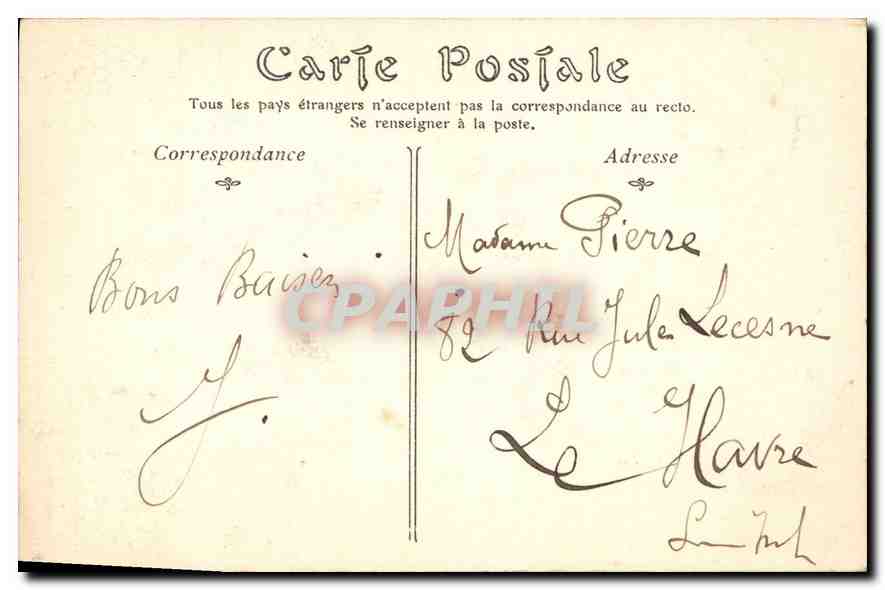 Carte Postale
Tous les pays étrangers n'acceptent pas la correspondance au recto.
Se renseigner à la poste.
Correspondance
Bons Baisers
J.
Adresse
Madame Pierre
82 Rue Jules Lecesne
Le Havre
CPAPHIL